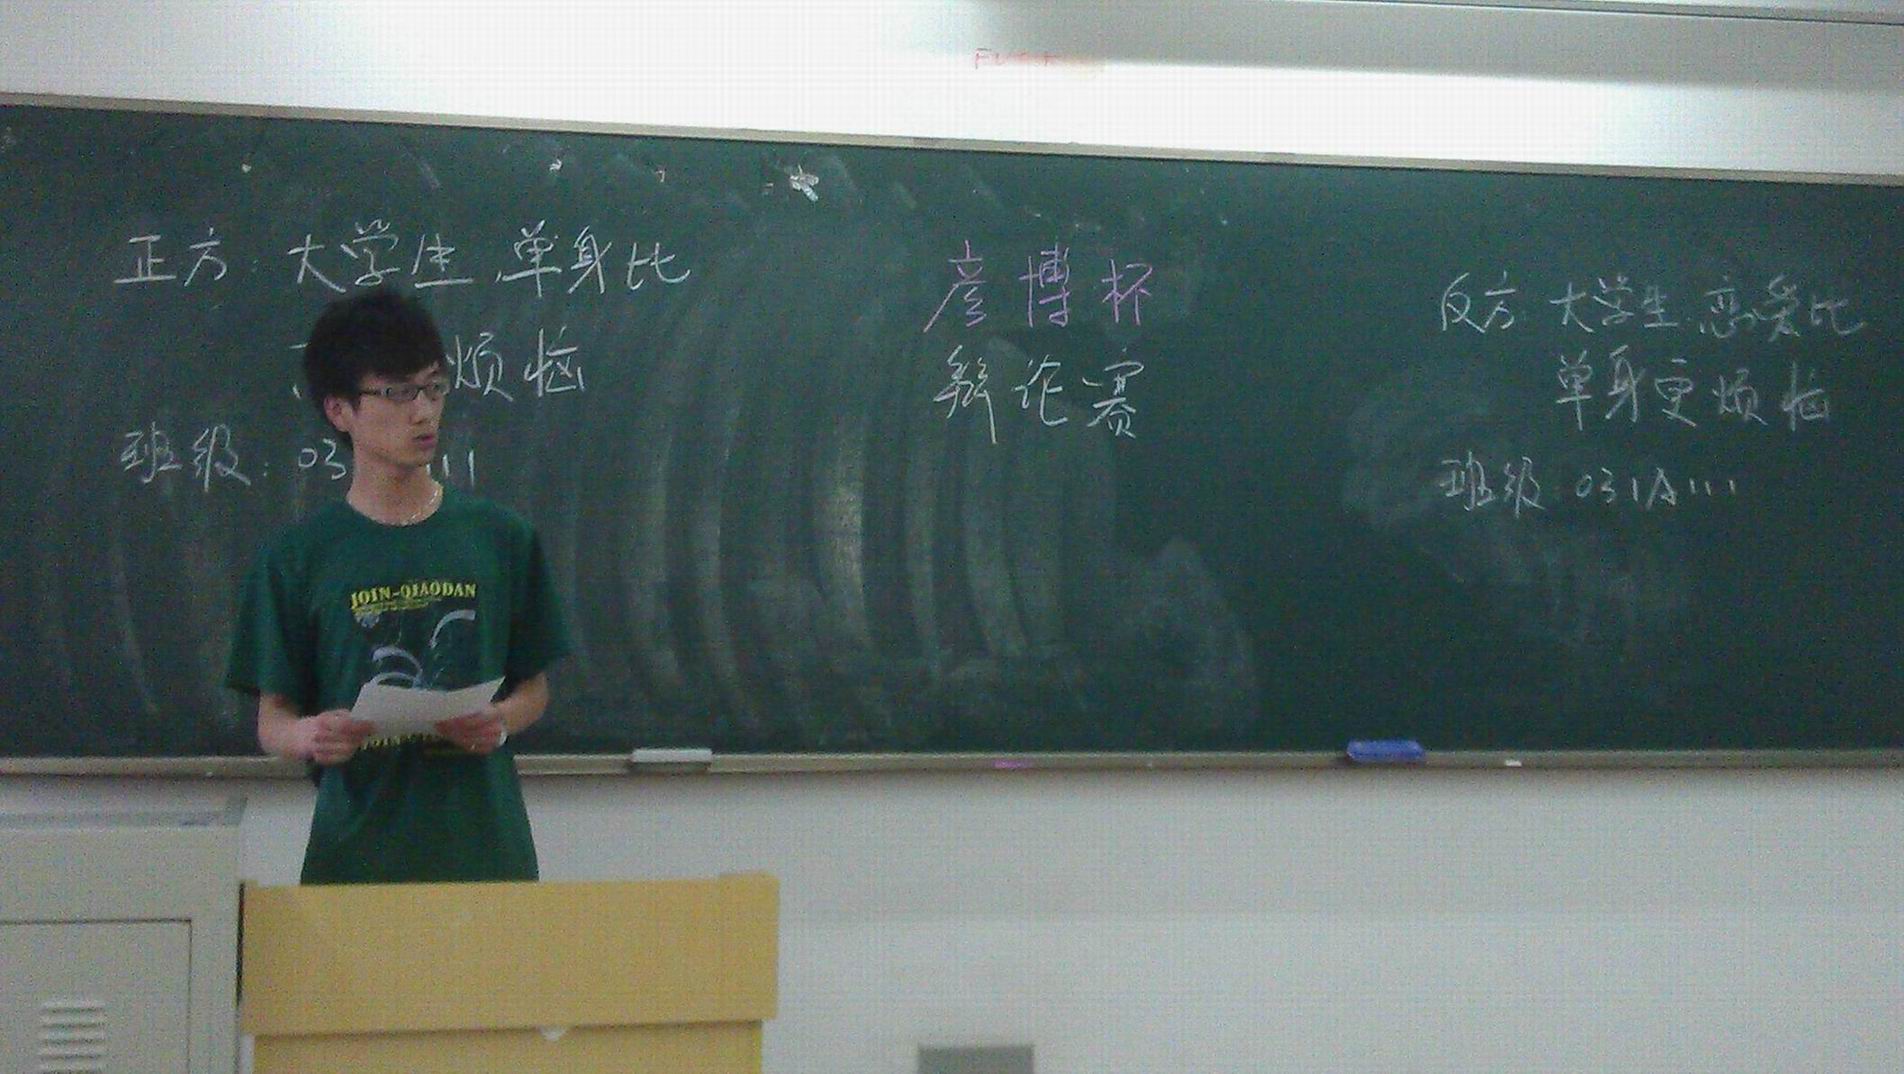 正方：大学生单身比
烦恼
班级：03 11
彦博杯
辩论赛
反方：大学生恋爱比
单身更烦恼
班级：031A111
JOIN-QIAODAN